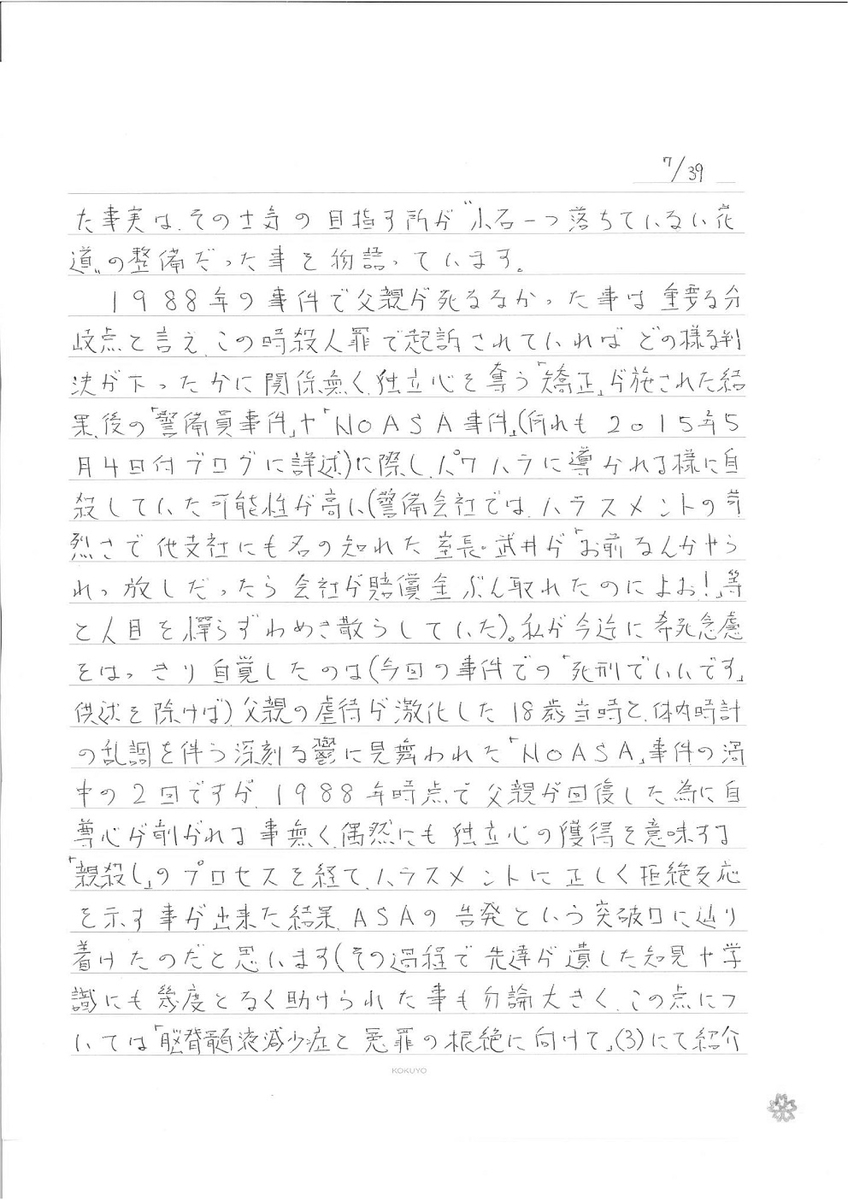 7/39
た事実は、その士気の目指す所が〝小石一つ落ちていない花
道〟の整備だった事を物語っています。
1988年の事件で父親が死ななかった事は重要な分
岐点と言え、この時殺人罪で起訴されていれば どの様な判
決が下ったかに関係無く、独立心を奪う「矯正」が施された結
果、後の「警備員事件」や「NOASA事件」(何れも2015年5
月4日付ブログに詳述)に際し、パワハラに導かれる様に自
殺していた可能性が高い(警備会社では、ハラスメントの苛
烈さで他支社にも名の知れた室長・武井が「お前なんかやら
れっ放しだったら会社が賠償金ぶん取れたのによお!」等
と人目を憚らずわめき散らしていた)。私が今迄に希死念慮
をはっきり自覚したのは(今回の事件での「死刑でいいです」
供述を除けば)父親の虐待が激化した18歳当時と、体内時計
の乱調を伴う深刻な鬱に見舞われた「NOASA」事件の渦
中の2回ですが、1988年時点で父親が回復した為に自
尊心が削がれる事無く、偶然にも独立心の獲得を意味する
「親殺し」のプロセスを経て、ハラスメントに正しく拒絶反応
を示す事が出来た結果、ASAの告発という突破口に辿り
着けたのだと思います(その過程で先達が遺した知見や学
識にも幾度となく助けられた事も勿論大きく、この点につ
いては「脳脊髄液減少症と冤罪の根絶に向けて」(3)にて紹介
KOKUYO